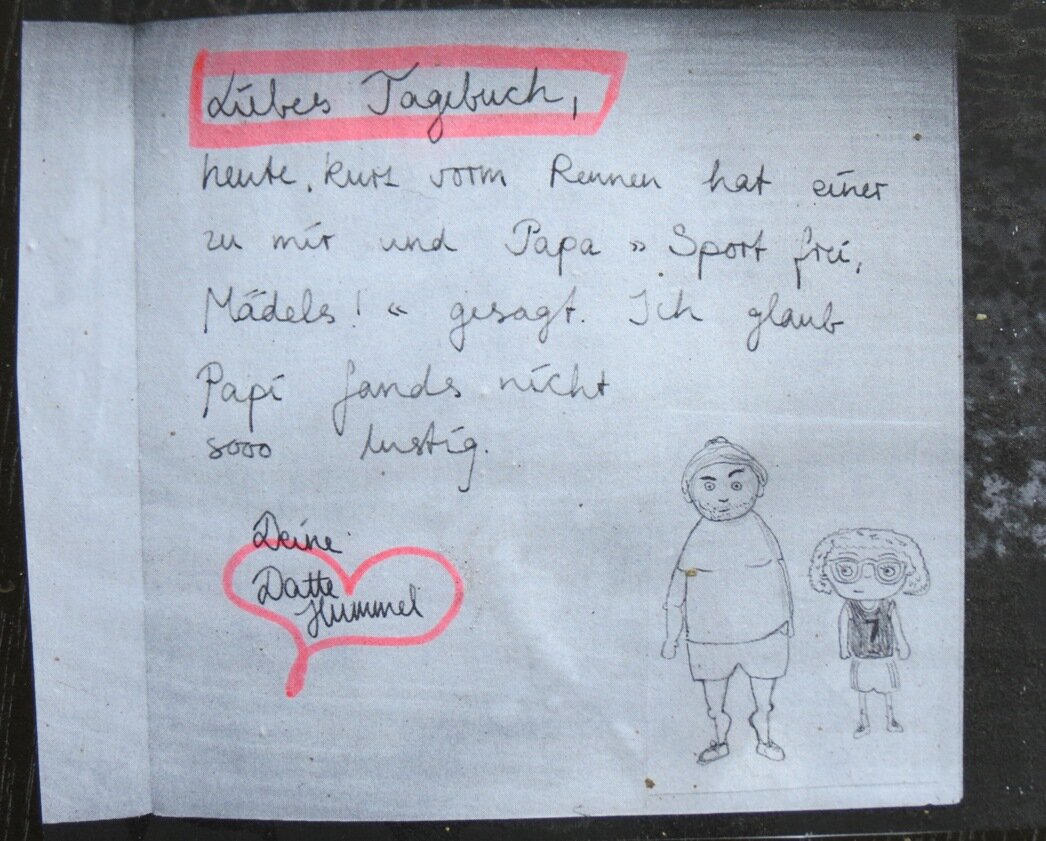 Liebes Tagebuch,
heute, kurz vorm Rennen hat einer
zu mir und Papa » Sport frei,
Mädels! « gesagt. Ich glaub
Papi fands nicht
sooo lustig.
Deine
Datte
Hummel
7